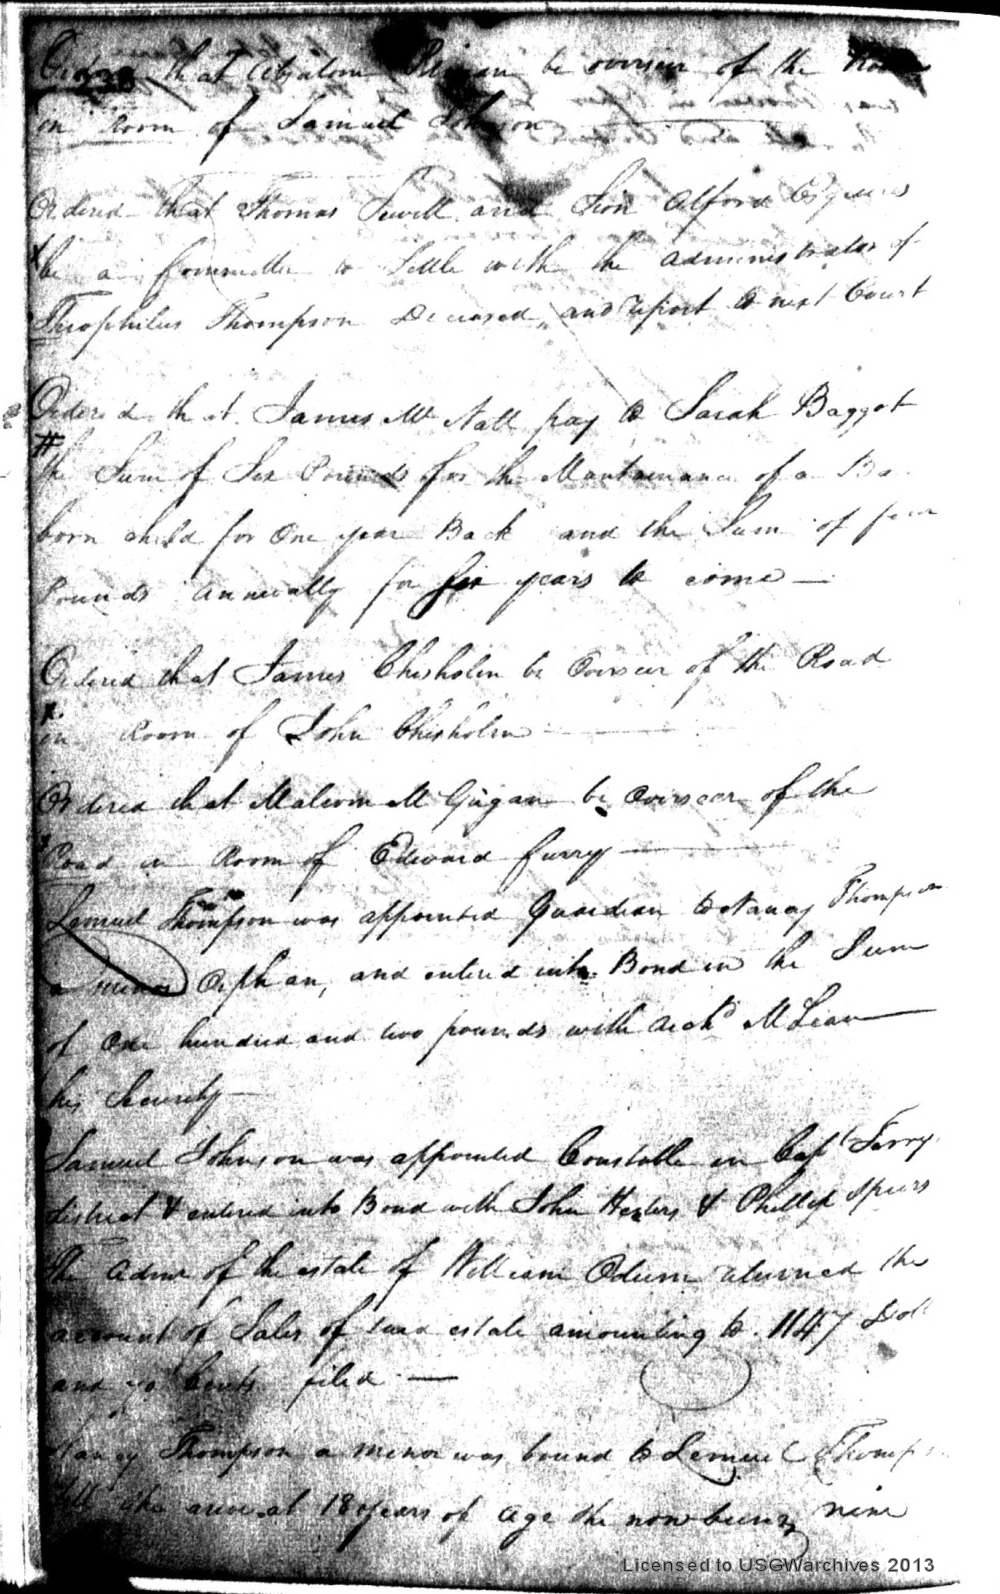 Ordered that Absalom be overseer of the Road
in Room of Samuel Johnson
Ordered that Thomas Sewell and Sion Alford Esquires
be a Committee to Settle with the administrator of
Theophilus Thompson Deceased, and report to next Court
Ordered that James Mc Natt pay to Sarah Baggot
#
the Sum of Six Pounds for the Maintainance of a Ba
born child for One year Back and the Sum of four
Pounds annually for Six years to come —
Ordered that James Chisholm be Overseer of the Road
in Room of John Chisholm
Ordered that Malcom Mc Gugan be Overseer of the
Road in Room of Edward Curry —
Lemuel Thompson was appointed Guardian to Nancy Thompson
a minor Orphan, and entered into Bond in the Sum
of One hundred and two pounds with Archd McLean
his Security —
Samuel Johnson was appointed Constable in Capt Terry
district & entered into Bond with John Hesters & Phillip Speirs
The Admr of the estate of William Odum returned the
account of Sales of said estate amounting to 1147 Doll
and 90 Cents filed —
Nancy Thompson a minor was bound to Lemuel Thomps
till she arive at 18 years of age the now being nine
Licensed to USGWarchives 2013